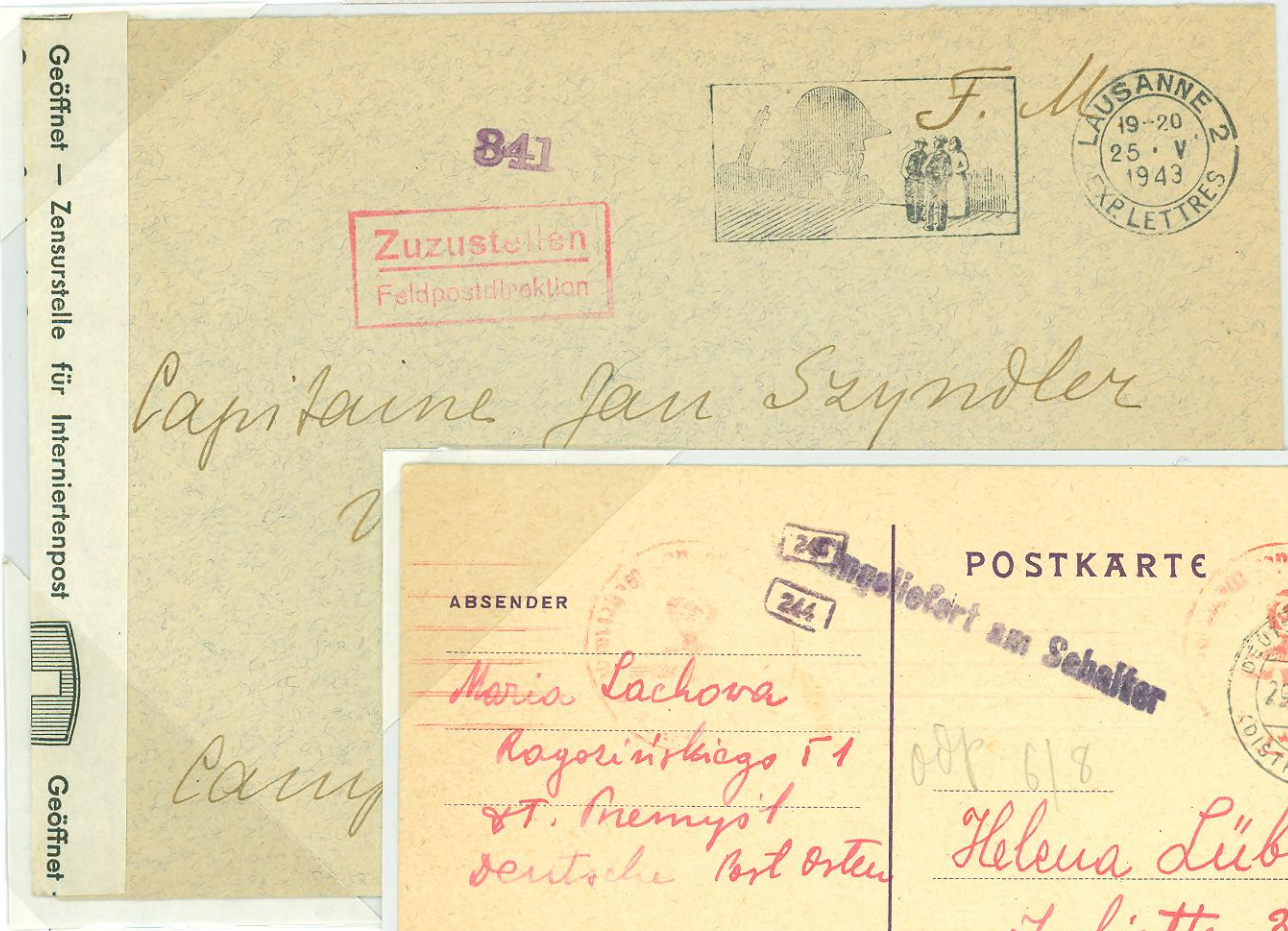 Geöffnet — Zensurstelle für Interniertenpost
Geöffnet
841
Zuzustellen
Feldpostdirektion
F. M
LAUSANNE 2
19-20
25 · V
1943
EXP. LETTRES
Capitaine Jan Szyndler
Camp
POSTKARTE
ABSENDER
244
Eingeliefert am Schalter
Maria Lachowa
Deutsche Post Osten
odp 6/8
Helena Lüb